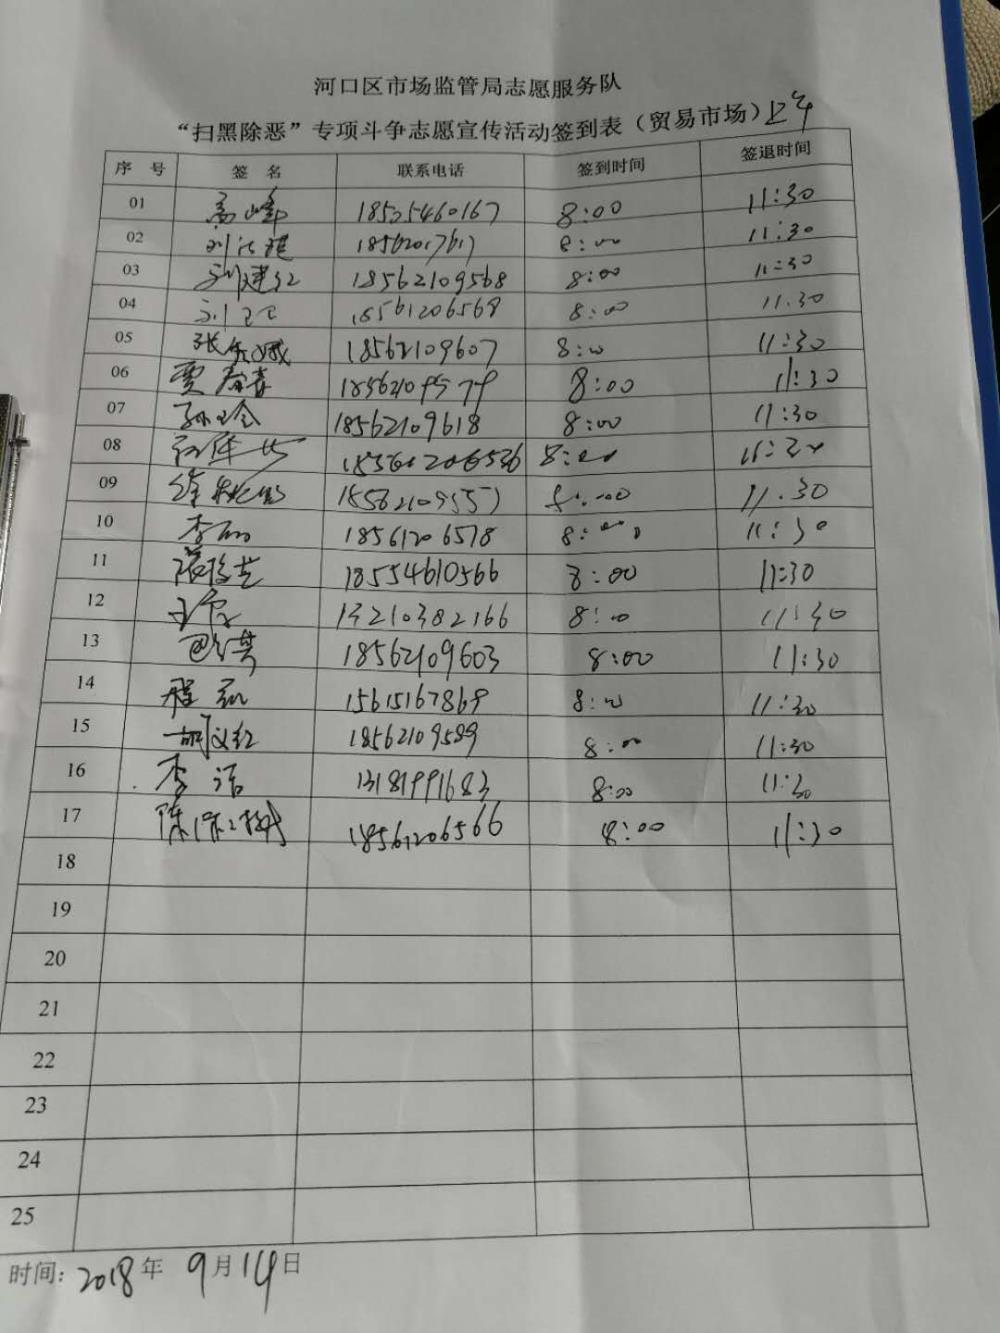 河口区市场监管局志愿服务队
“扫黑除恶”专项斗争志愿宣传活动签到表（贸易市场）上午
序 号 签 名 联系电话 签到时间 签退时间
01 高峰 18525460167 8:00 11:30
02 8:00 11:30
03 刘建红 18562109568 8:00 11:30
04 刘 18561206569 8:00 11.30
05 张 18562109607 8:00 11:30
06 贾春喜 18562109579 8:00 11:30
07 孙 18562109618 8:00 11:30
08 18561206536 8:00 11:30
09 徐 18562109557 8:00 11.30
10 李 18561206578 8:00 11:30
11 18554610566 8:00 11:30
12 王 13210382166 8:00 11:30
13 18562109603 8:00 11:30
14 程 15615167869 8:00 11:30
15 胡文红 18562109589 8:00 11:30
16 李洁 13181991683 8:00 11:30
17 陈 18561206566 8:00 11:30
18
19
20
21
22
23
24
25
时间: 2018年 9月14日